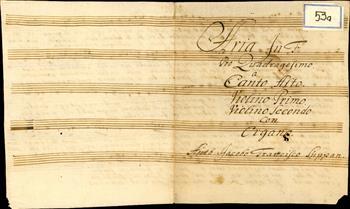 53a
Aria In F.
Pro Quadragesimo
a
Canto Alto.
Violino Primo.
Violino Secondo
Con
Organo.
Jacobo Francisco